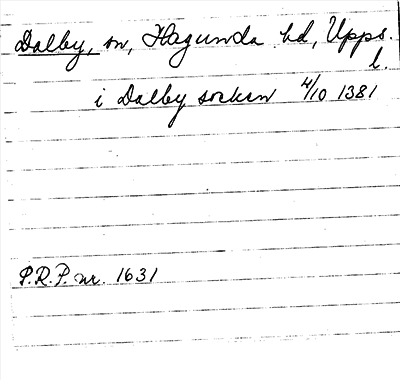 Dalby, sn, Hagunda hd, Upps.
l.
i Dalby sockn 4/10 1381
P.R.P. nr. 1631